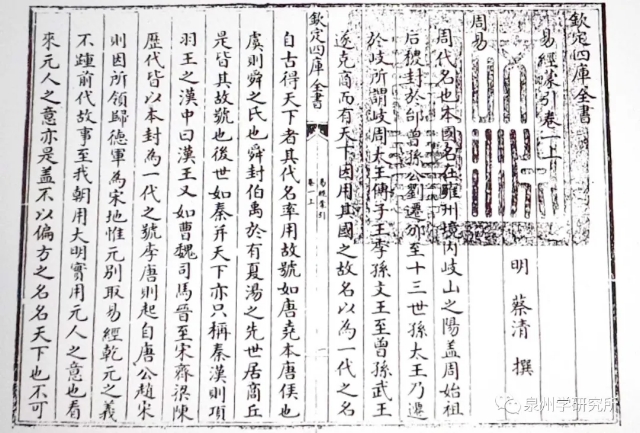 欽定四庫全書
易經蒙引卷一上
明 蔡清 撰
周易
周代名也本國名在雍州境内岐山之陽蓋周始祖
后稷封於邰曾孫公劉遷邠至十三世孫太王乃遷
於岐所謂岐周太王傳子王季孫文王至曾孫武王
遂克商而有天下因用其國之故名以為一代之名
欽定四庫全書
易經蒙引
卷一上
自古得天下者其代名率用故號如唐堯本唐侯也
虞則舜之氏也舜封伯禹於有夏湯之先世居商丘
是皆其故號也後世如秦并天下亦只稱秦漢則項
羽王之漢中曰漢王又如曹魏司馬晉至宋齊梁陳
歴代皆以本封為一代之號李唐則起自唐公趙宋
則因所領歸德軍為宋地惟元别取易經乾元之義
不踵前代故事至我朝用大明實用元人之意也看
來元人之意亦是蓋不以偏方之名名天下也不可
泉州学研究所